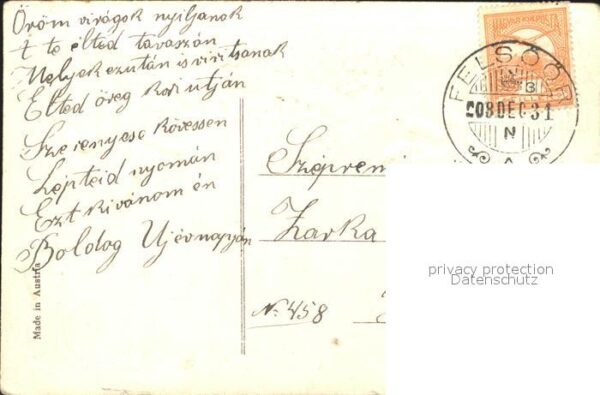 Öröm virágok nyiljanok
A te élted tavaszán
Melyek ezután is viritsanak
Élted öreg kori utján
Szerencse kövessen
Lépteid nyomán
Ezt kivánom én
Boldog Ujévnapján
MAGYAR KIR. POSTA
FELSŐŐR
908 DEC 31
N
A
Szépre
Zarka
No. 458
privacy protection
Datenschutz
Made in Austria